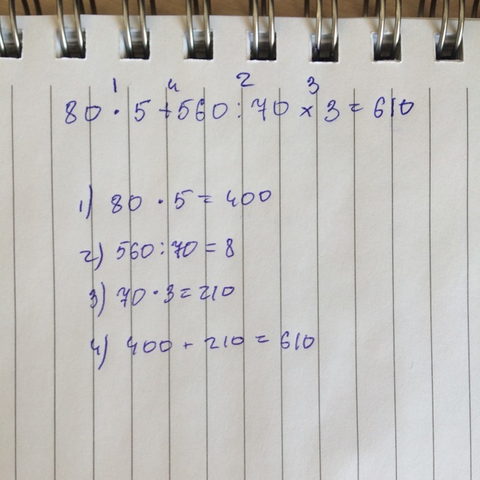 1 4 2 3
80 · 5 + 560 : 70 x 3 = 610
1) 80 · 5 = 400
2) 560 : 70 = 8
3) 70 · 3 = 210
4) 400 + 210 = 610